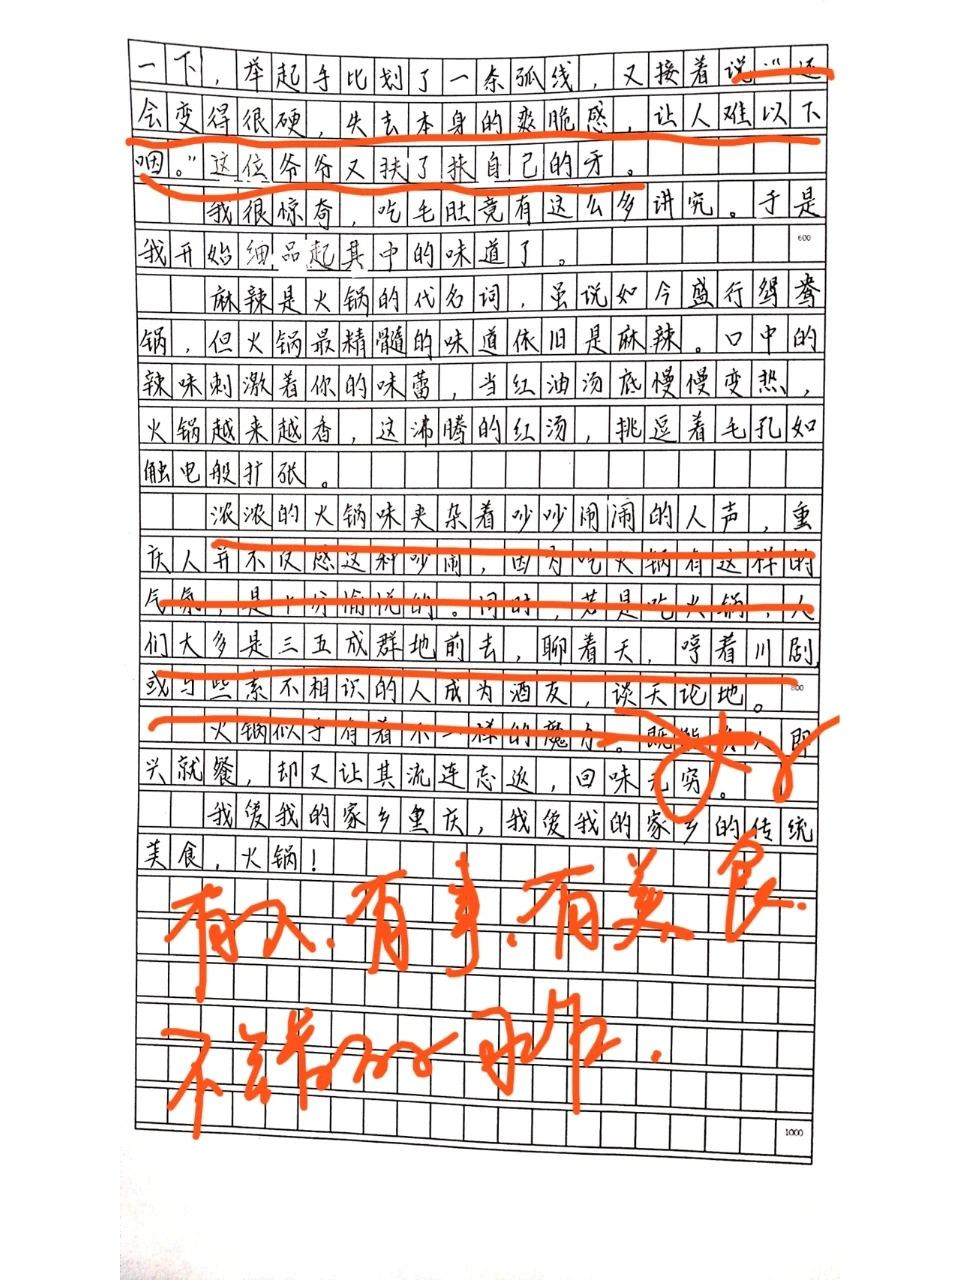 一下，举起手比划了一条弧线，又接着说“还
会变得很硬，失去本身的爽脆感，让人难以下
咽。”这位爷爷又扶了扶自己的牙。
我很惊奇，吃毛肚竟有这么多讲究。于是
600
我开始细品起其中的味道了。
麻辣是火锅的代名词，虽说如今盛行鸳鸯
锅，但火锅最精髓的味道依旧是麻辣。口中的
辣味刺激着你的味蕾，当红油汤底慢慢变热，
火锅越来越香，这沸腾的红汤，挑逗着毛孔如
触电般扩张。
浓浓的火锅味夹杂着吵吵闹闹的人声，重
庆人并不反感这种吵闹，因为吃火锅有这样的
气氛，是十分愉悦的。同时，若是吃火锅，人
们大多是三五成群地前去，聊着天，哼着川剧，
或与些素不相识的人成为酒友，谈天论地。
800
火锅似乎有着不一样的魔力。既能令人即
兴就餐，却又让其流连忘返，回味无穷。
我爱我的家乡重庆，我爱我的家乡的传统
美食，火锅！
有人、有事、有美食
不错的习作.
1000